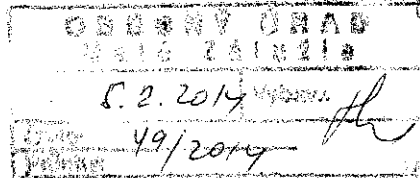 OBECNÝ ÚRAD
Malé Zálužie
5.2.2014 Vybav.:
Číslo: 49/2014